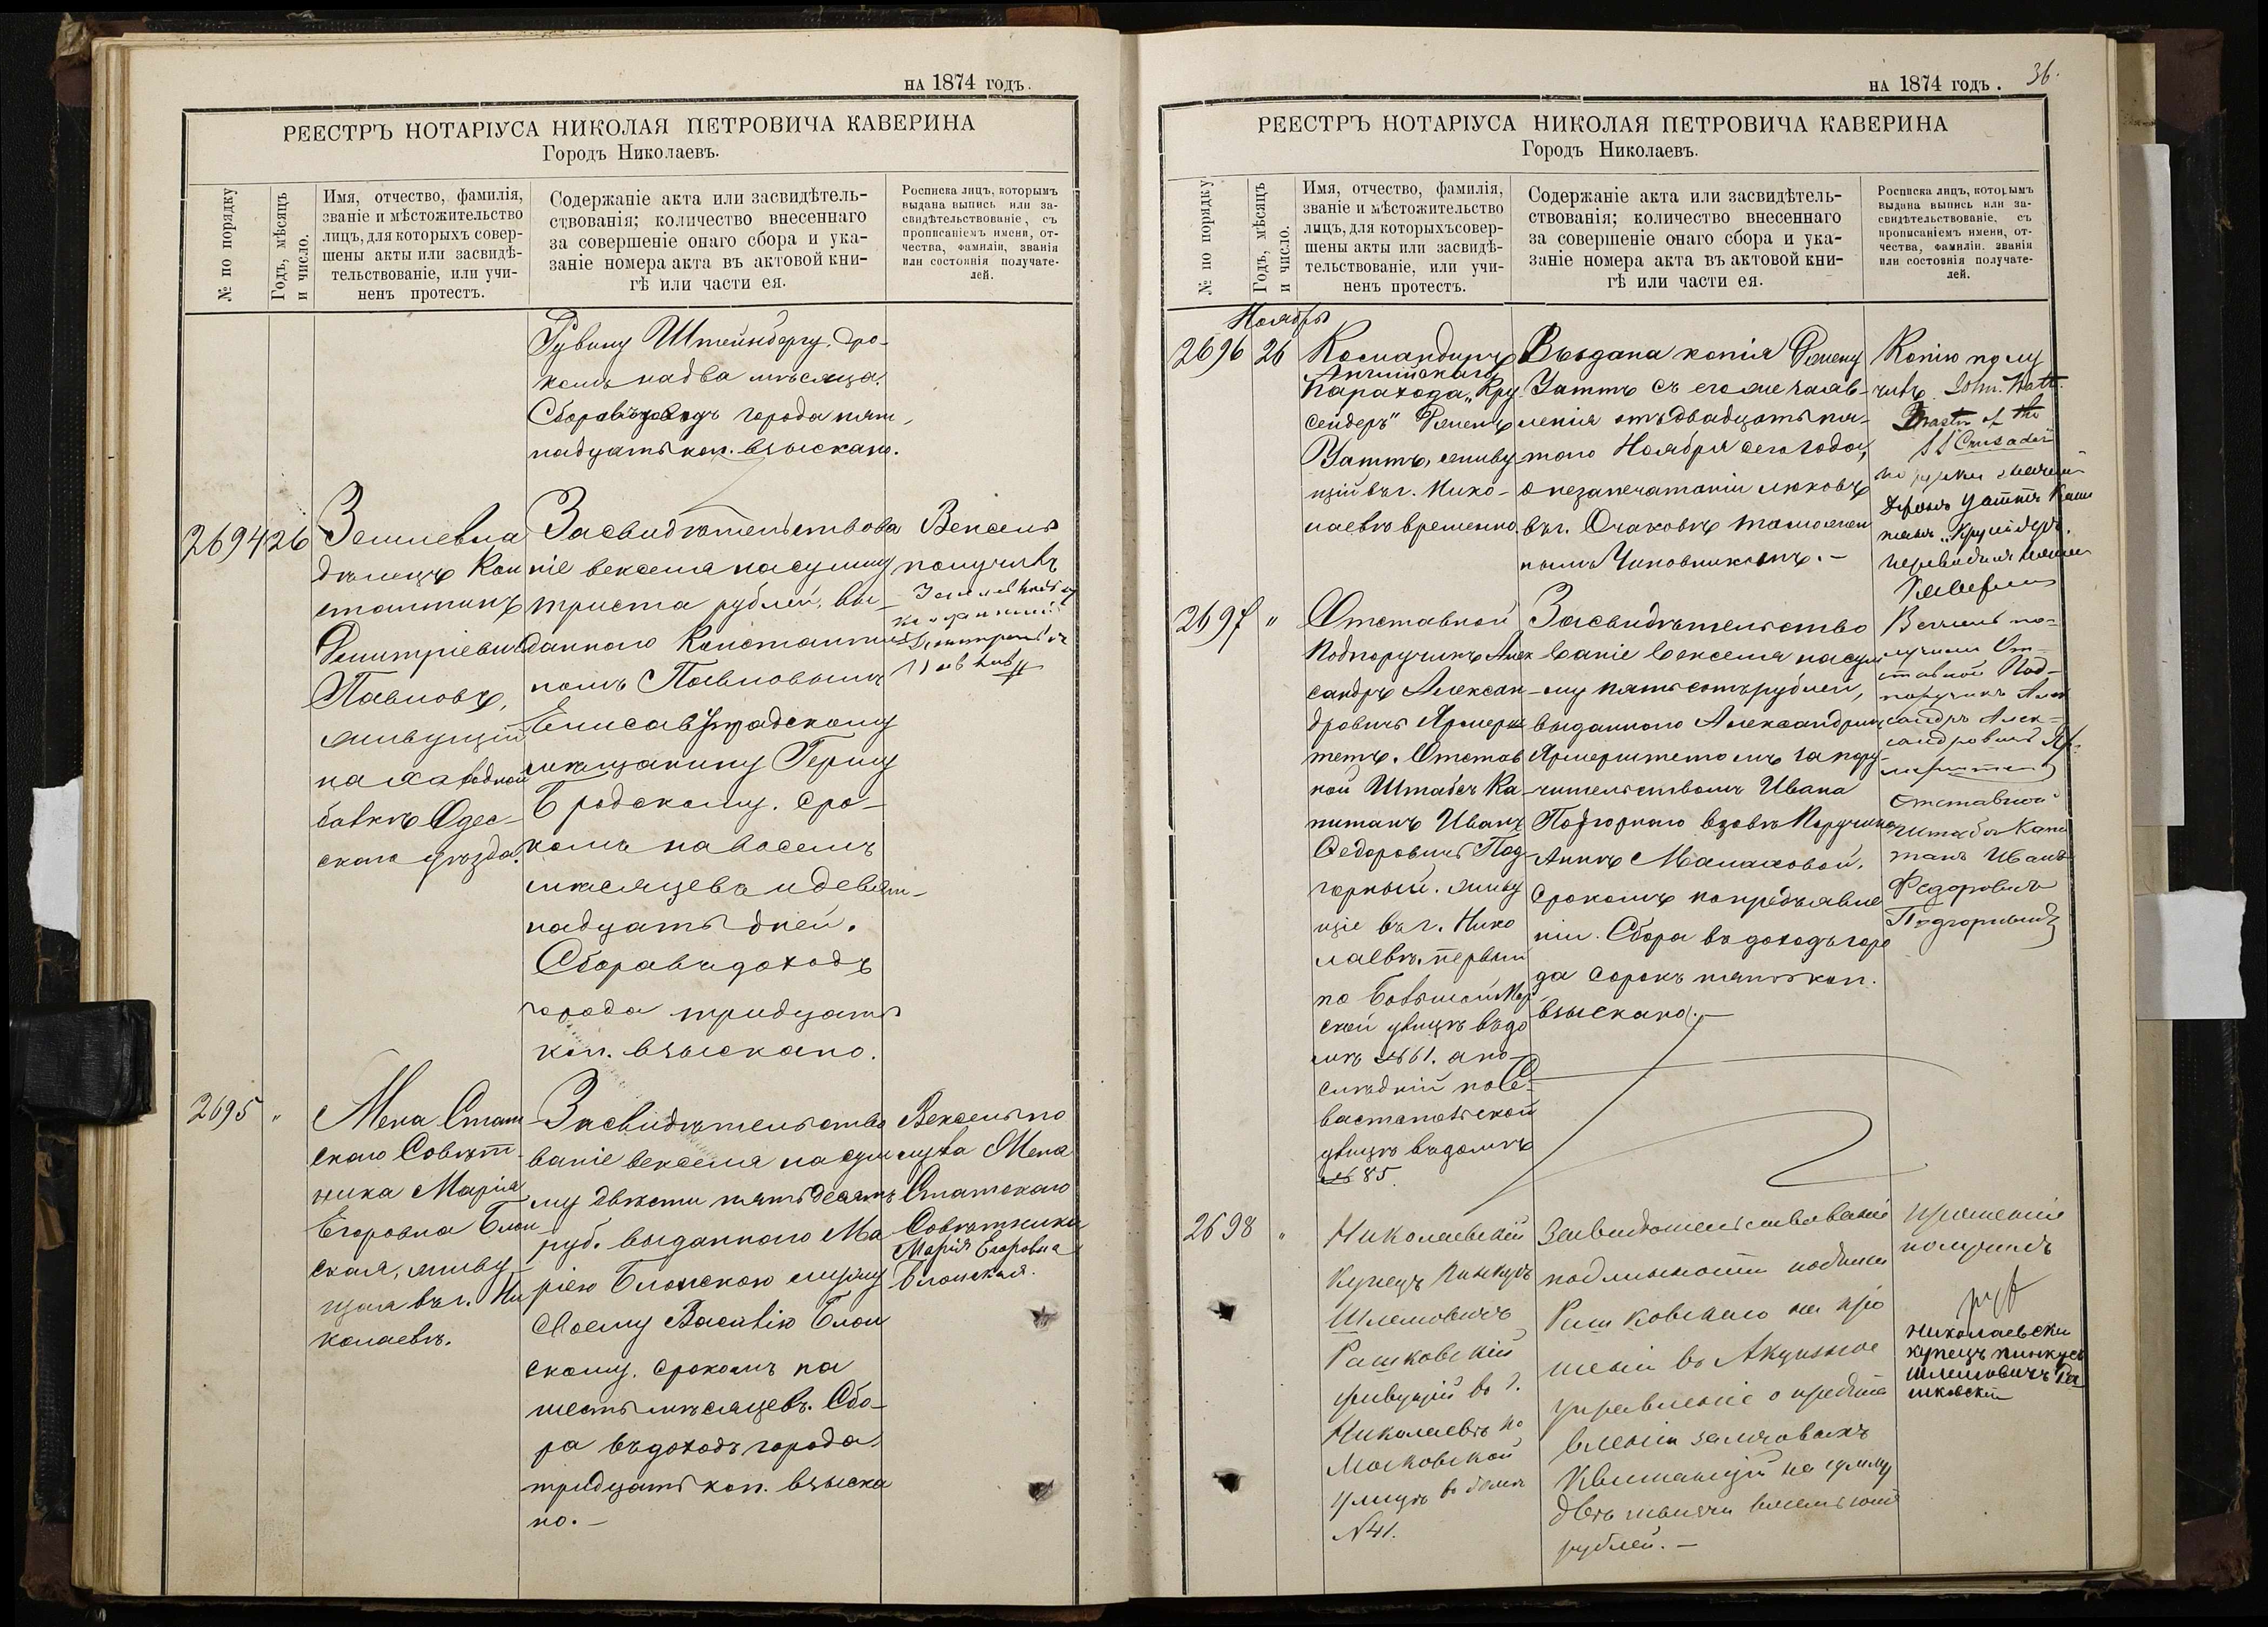 на 1874 годъ.
РЕЕСТРЪ НОТАРІУСА НИКОЛАЯ ПЕТРОВИЧА КАВЕРИНА
Городъ Николаевъ.
№ по порядку
Годъ, мѣсяцъ
и число.
Имя, отчество, фамилія,
званіе и мѣстожительство
лицъ, для которыхъ совер-
шены акты или засвидѣ-
тельствованіе, или учи-
ненъ протестъ.
Содержаніе акта или засвидѣтель-
ствованія; количество внесеннаго
за совершеніе онаго сбора и ука-
заніе номера акта въ актовой кни-
гѣ или части ея.
Росписка лицъ, которымъ
выдана выпись или за-
свидѣтельствованіе, съ
прописаніемъ имени, от-
чества, фамиліи, званія
или состоянія получате-
лей.
Рувину Штейнбергу, сро-
комъ на два мѣсяца.
Сбора въ доходъ города пят-
надцать коп. взыскано.
2694
26
Землевла
дѣлецъ Кон
стантинъ
Димитріевичъ
Павловъ,
живущій
на
Одес-
скаго уѣзда.
Засвидѣтельствова
ніе векселя на сумму
триста рублей, вы-
даннаго Константи
номъ Павловымъ
Елисаветградскому
мѣщанину Гершу
Бродскому. Сро-
комъ на восемь
мѣсяцевъ и девят-
надцать дней.
Сбора въ доходъ
города тридцать
коп. взыскано.
Вексель
получилъ
2695
"
Жена Стат
скаго Совѣт-
ника Марія
Егоровна Блон
ская, живу
щая въ г. Ни
колаевѣ.
Засвидѣтельство
ваніе векселя на сум
му двѣсти пятьдесятъ
руб. выданнаго Ма
ріею Блонскою мужу
своему Василію Блон
скому. Срокомъ на
шесть мѣсяцевъ. Сбо-
ра въ доходъ города
тридцать коп. взыска
но.—
Вексель по
лучила Жена
Статскаго
Совѣтника
Марія Егоровна
Блонская.
на 1874 годъ.
36.
РЕЕСТРЪ НОТАРІУСА НИКОЛАЯ ПЕТРОВИЧА КАВЕРИНА
Городъ Николаевъ.
№ по порядку
Годъ, мѣсяцъ
и число.
Имя, отчество, фамилія,
званіе и мѣстожительство
лицъ, для которыхъ совер-
шены акты или засвидѣ-
тельствованіе, или учи-
ненъ протестъ.
Содержаніе акта или засвидѣтель-
ствованія; количество внесеннаго
за совершеніе онаго сбора и ука-
заніе номера акта въ актовой кни-
гѣ или части ея.
Росписка лицъ, которымъ
выдана выпись или за-
свидѣтельствованіе, съ
прописаніемъ имени, от-
чества, фамиліи, званія
или состоянія получате-
лей.
Ноября
2696
26
Командиръ
Англійскаго
Парохода „Кру
сейдеръ" Джемсъ
Уаттъ, живу
щій въ г. Нико-
лаевѣ временно.
Выдана копія Джемсу
Уаттъ съ его же заяв-
ленія отъ двадцать пя-
таго Ноября сего года,
о незапечатаніи люковъ
въ г. Очаковѣ таможен
нымъ Чиновникомъ.—
Копію полу
чилъ John Watt
Master of the
SS Crusader
2697
"
Отставной
Подпоручикъ Алек
сандръ Алексан-
дровичъ Ярмерш
тетъ. Отстав
ной Штабсъ Ка-
питанъ Иванъ
Федоровичъ Под
горный. живу
щіе въ г. Нико
лаевѣ. первый
по Большой Мор
ской улицѣ въ до
мѣ №61. а по-
слѣдній по Се-
вастопольской
улицѣ въ домѣ
№ 85.
Засвидѣтельство
ваніе векселя на сум
му пятьсотъ рублей,
выданнаго Александромъ
Ярмерштетомъ за пору-
чительствомъ Ивана
Подгорнаго вдовѣ Поручика
Аннѣ
Срокомъ по предъявле
ніи. Сбора въ доходъ горо
да сорокъ пять коп.
взыскано.—
Вексель по-
лучили От-
ставной Под-
поручикъ Алек
сандръ Алек-
сандровичъ Яр-
мерштетъ
Отставной
штабсъ Капи
танъ Иванъ
Федоровичъ
Подгорный
2698
"
Николаевскій
Купецъ Пинкусъ
Шлемовичъ
Рашковскій
живущій въ г.
Николаевѣ по
Московской
улицѣ въ домѣ
№41.
Засвидѣтельствованіе
подлинности подписи
Рашковскаго на про
шеніи въ Акцизное
управленіе о предста
вленіи залоговыхъ
Квитанцій на сумму
двѣ тысячи
рублей.—
Прошеніе
получилъ
Николаевски
купецъ пинкусъ
шлемовичъ Ра
шковскій